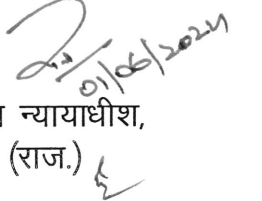 01/06/2024
न्यायाधीश,
(राज.)